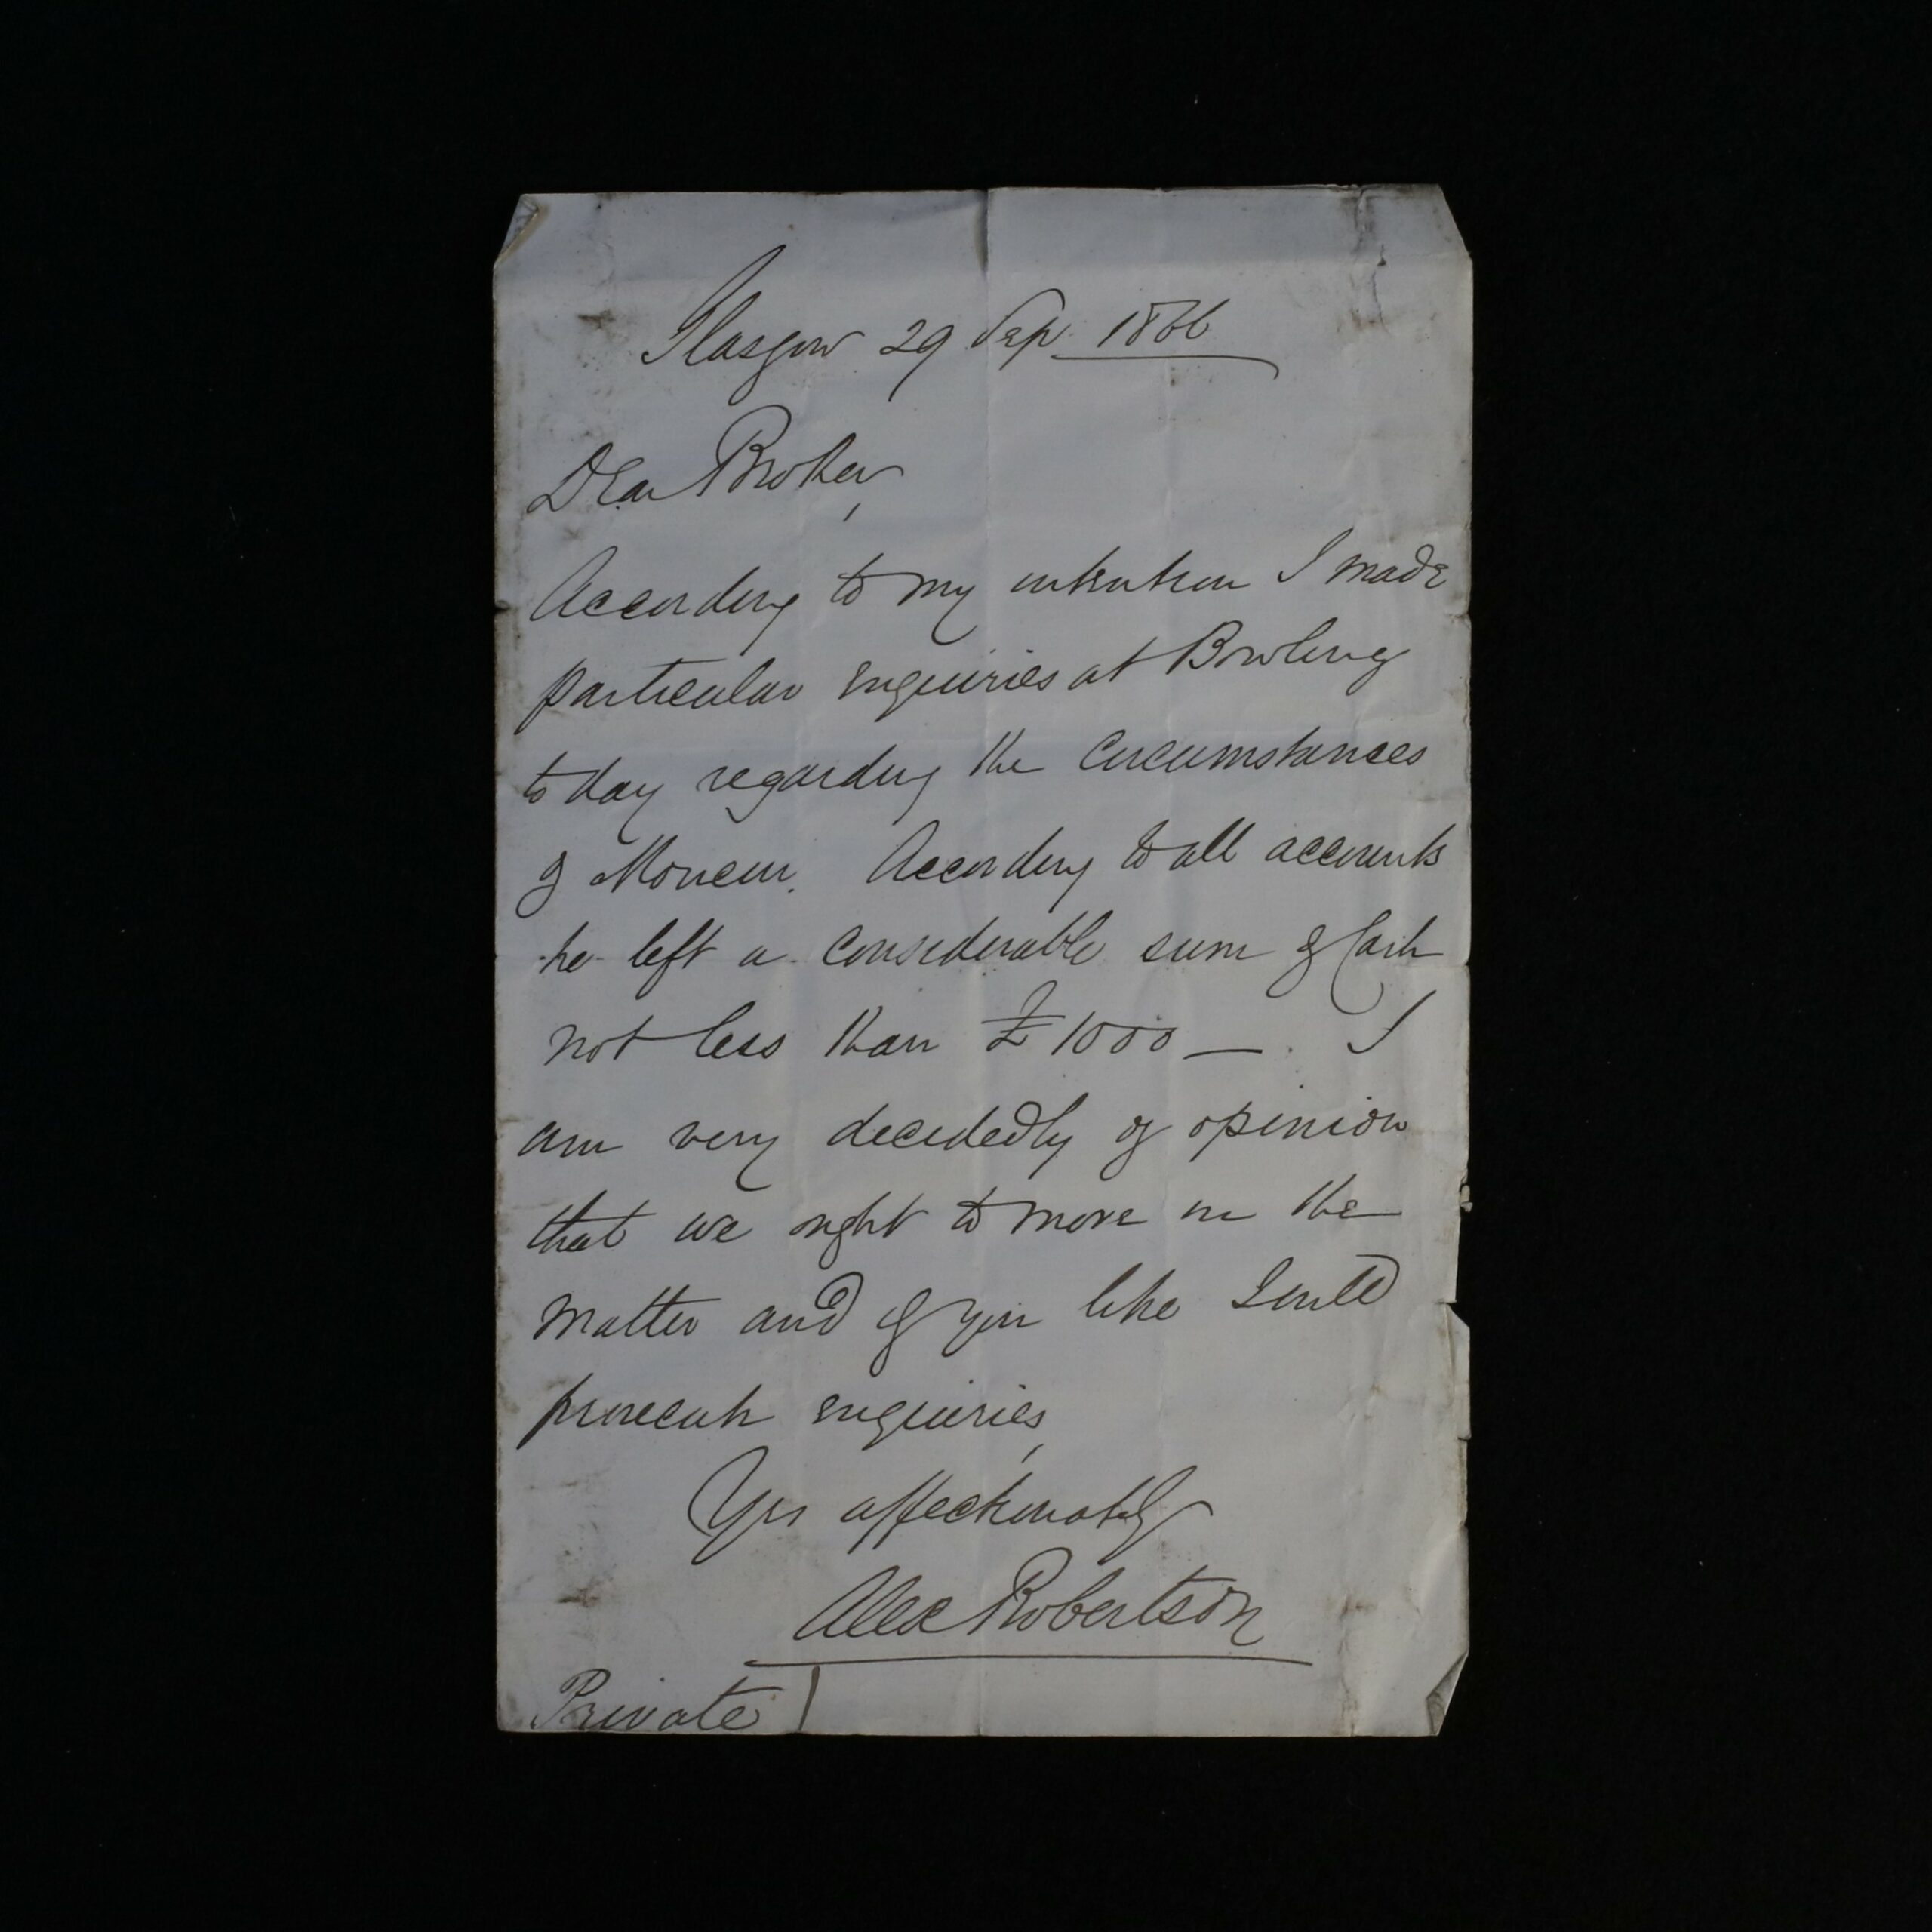 Glasgow 29 Sep. 1866
Dear Brother,
According to my intention I made
particular enquiries at Bowling
to day regarding the circumstances
of Moncur. According to all accounts
he left a considerable sum of Cash
not less than £1000 —. I
am very decidedly of opinion
that we ought to move in the
matter and if you like I will
prosecute enquiries,
Yrs affectionately
Alex Robertson
Private